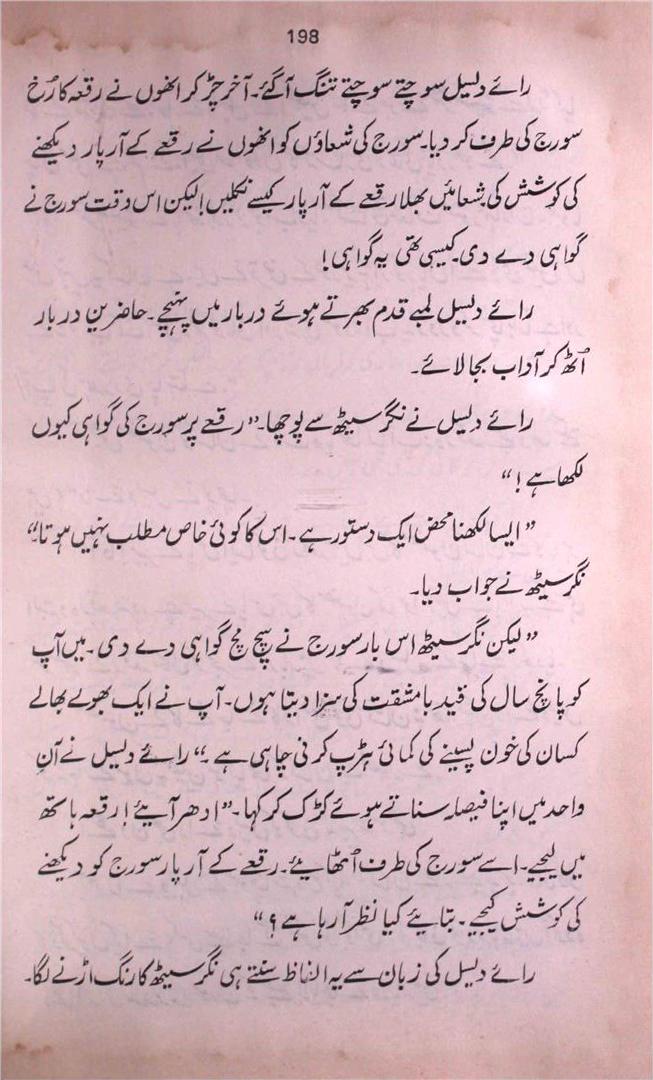 198
رائے دلیل سوچتے سوچتے تنگ آگئے۔ آخر چڑ کر انھوں نے رقعہ کا رُخ
سورج کی طرف کر دیا۔ سورج کی شعاؤں کو انھوں نے رقعے کے آر پار دیکھنے
کی کوشش کی شعائیں بھلا رقعے کے آر پار کیسے نکلیں! لیکن اس وقت سورج نے
گواہی دے دی۔ کیسی تھی یہ گواہی!
رائے دلیل لمبے قدم بھرتے ہوئے دربار میں پہنچے۔ حاضرین دربار
اُٹھ کر آداب بجا لائے۔
رائے دلیل نے نگر سیٹھ سے پوچھا۔ ”رقعے پر سورج کی گواہی کیوں
لکھا ہے!“
”ایسا لکھنا محض ایک دستور ہے۔ اس کا کوئی خاص مطلب نہیں ہوتا۔“
نگر سیٹھ نے جواب دیا۔
”لیکن نگر سیٹھ اس بار سورج نے سچ مچ گواہی دے دی۔ میں آپ
کو پانچ سال کی قید با مشقت کی سزا دیتا ہوں۔ آپ نے ایک بھولے بھالے
کسان کی خون پسینے کی کمائی ہڑپ کرنی چاہی ہے۔“ رائے دلیل نے آنِ
واحد میں اپنا فیصلہ سناتے ہوئے کڑک کر کہا۔ ”ادھر آیئے! رقعہ ہاتھ
میں لیجیے۔ اسے سورج کی طرف اُٹھایئے۔ رقعے کے آر پار سورج کو دیکھنے
کی کوشش کیجیے۔ بتایئے کیا نظر آ رہا ہے؟“
رائے دلیل کی زبان سے یہ الفاظ سنتے ہی نگر سیٹھ کا رنگ اڑنے لگا۔